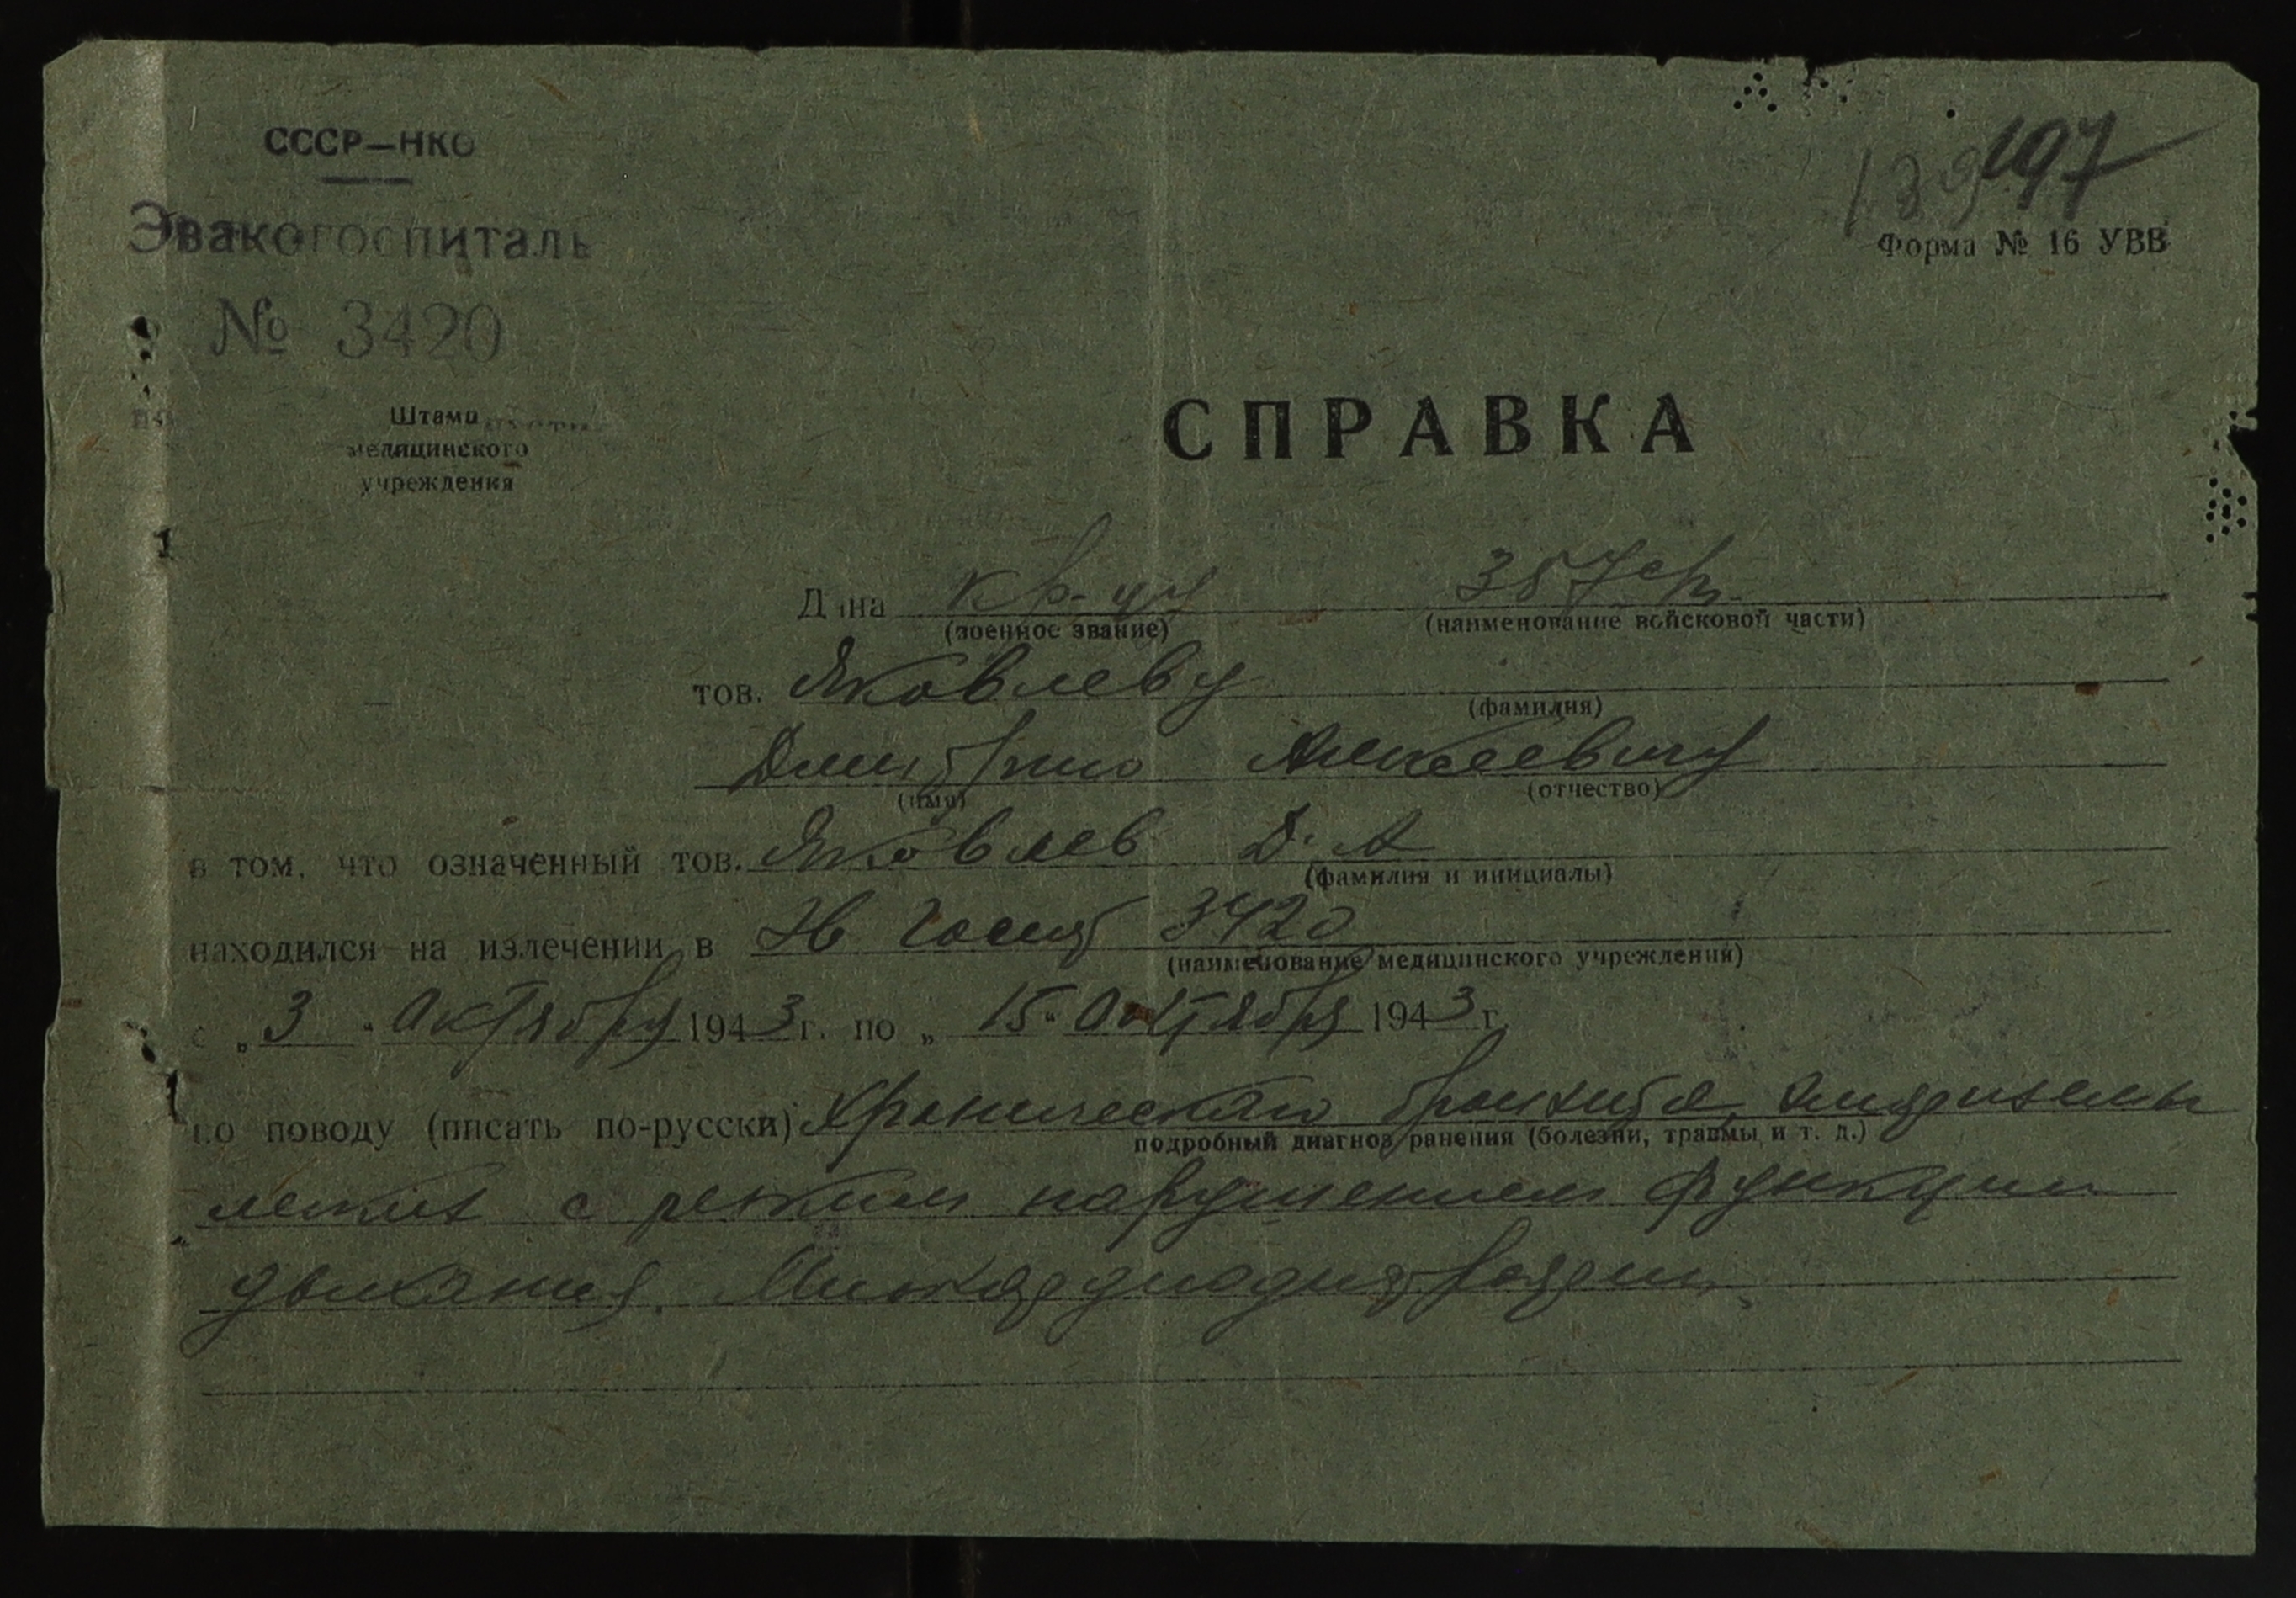 СССР—НКО
Эвакогоспиталь
№ 3420
197
139
Форма № 16 УВВ
Штамп
медицинского
учреждения
СПРАВКА
Дана кр-цу 357 сп.
(военное звание) (наименование войсковой части)
тов. Яковлеву
(фамилия)
Дмитрию Алексеевичу
(имя) (отчество)
в том, что означенный тов. Яковлев Д. А
(фамилия и инициалы)
находился на излечении в Эв госпит 3420
(наименование медицинского учреждения)
с „ 3 " Октября 1943 г. по „ 15 " Октября 1943 г.
по поводу (писать по-русски) Хронического бронхита, эмфиземы
подробный диагноз ранения (болезни, травмы и т. д.)
легких с резким нарушением функции
дыхания. Миокардиодистрофии.